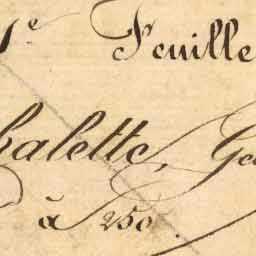 e Feuille
alette, Ge
à 250.